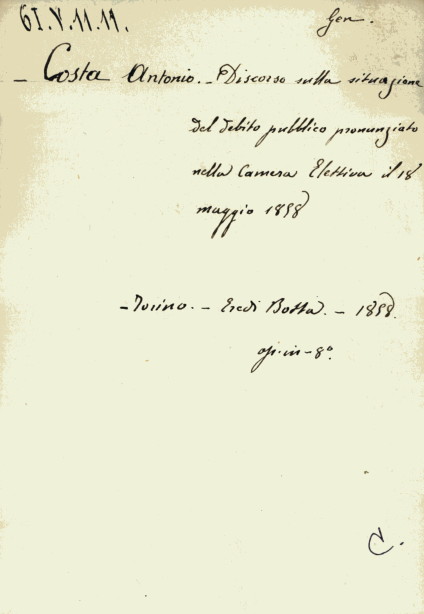 61.V.11.11.
Gen.
- Costa Antonio. - Discorso sulla situazione
del debito pubblico pronunziato
nella Camera Elettiva il 18
maggio 1858
- Torino. - Eredi Botta. - 1858.
op. in-8°.
C.